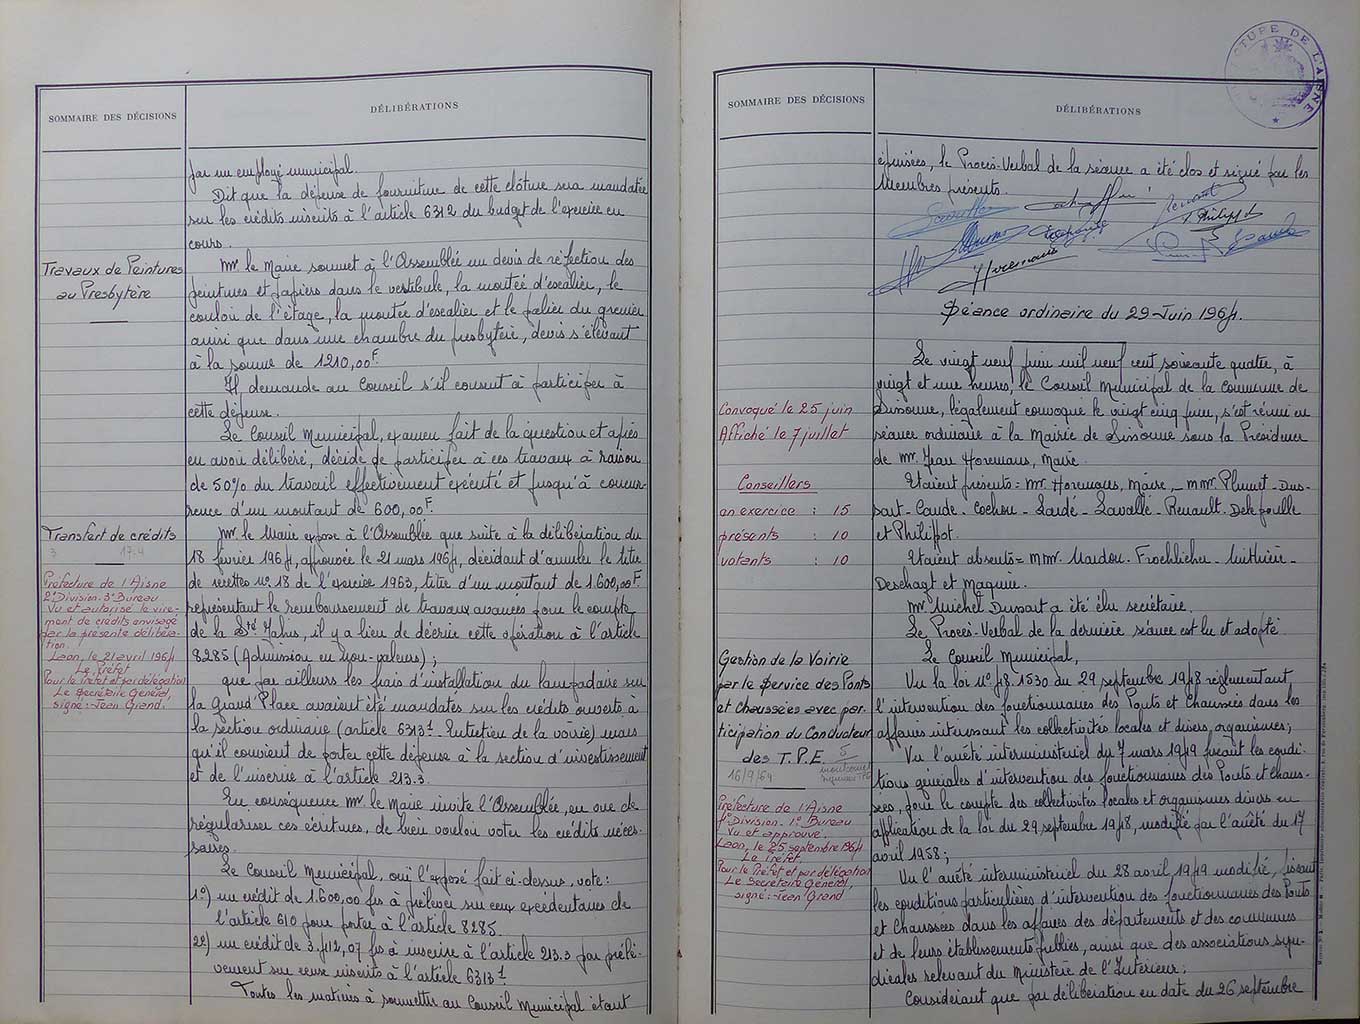 SOMMAIRE DES DÉCISIONS
DÉLIBÉRATIONS
par un employé municipal.
Dit que la dépense de fourniture de cette clôture sera mandatée
sur les crédits inscrits à l'article 6312 du budget de l'exercice en
cours.
Travaux de Peintures
au Presbytère
Mr le Maire soumet à l'Assemblée un devis de réfection des
peintures et papiers dans le vestibule, la montée d'escalier, le
couloir de l'étage, la montée d'escalier et le palier du grenier
ainsi que dans une chambre du presbytère, devis s'élevant
à la somme de 1210,00F.
Il demande au Conseil s'il consent à participer à
cette dépense.
Le Conseil Municipal, examen fait de la question et après
en avoir délibéré, décide de participer à ces travaux à raison
de 50% du travail effectivement exécuté et jusqu'à concur-
rence d'un montant de 600,00F.
Transfert de crédits
3 17.4
Préfecture de l'Aisne
2e Division. 3e Bureau
Vu et autorisé le vire-
ment de crédits envisagé
par la présente délibéra-
tion.
Laon, le 21 avril 1964
Le Préfet
Pour le Préfet et par délégation
Le Secrétaire Général,
signé: Jean Grand.
Mr le Maire expose à l'Assemblée que suite à la délibération du
18 février 1964, approuvée le 21 mars 1964, décidant d'annuler le titre
de recettes no 18 de l'exercice 1963, titre d'un montant de 1.600,00F.
représentant le remboursement de travaux avancées pour le compte
de la Sté, il y a lieu de décrire cette opération à l'article
8285 (Admission en non-valeurs);
que par ailleurs les frais d'installation du lampadaire sur
la Grand Place avaient été mandatés sur les crédits ouverts à
la section ordinaire (article 63131 Entretien de la voirie) mais
qu'il convient de porter cette dépense à la section d'investissement
et de l'inscrire à l'article 213.3.
En conséquence Mr le Maire invite l'Assemblée, en vue de
régulariser ces écritures, de bien vouloir voter les crédits néces-
saires.
Le Conseil Municipal, ouï l'exposé fait ci-dessus, vote:
1o) un crédit de 1.600,00 frs à prélever sur ceux excédentaires de
l'article 610 pour porter à l'article 8285.
2e) un crédit de 3.412,07 frs à inscrire à l'article 213.3 par prélè-
vement sur ceux inscrits à l'article 63131
Toutes les matières à soumettre au Conseil Municipal étant
SOMMAIRE DES DÉCISIONS
DÉLIBÉRATIONS
DE L'AISNE
épuisées, le Procès-Verbal de la séance a été clos et signé par les
Membres présents.
Séance ordinaire du 29 Juin 1964.
Convoqué le 25 juin
Affiché le 7 juillet
Conseillers
en exercice : 15
présents : 10
votants : 10
Le vingt neuf juin mil neuf cent soixante quatre, à
vingt et une heures, le Conseil Municipal de la commune de
Sissonne, légalement convoqué le vingt cinq juin, s'est réuni en
séance ordinaire à la Mairie de Sissonne sous la Présidence
de Mr. Jean Horemans, Maire.
Etaient présents = Mr. Horemans, Maire, _ MMr. Plumet - Dus-
sart - Caude. Cochou - Lardé - Lavallé - Renault. Delepoulle
et Philippot.
Etaient absents = MMr. Froehlicher
Deschagt et Maguin.
Mr Michel Dussart a été élu secrétaire.
Le Procès-Verbal de la dernière séance est lu et adopté
Gestion de la Voirie
par le Service des Ponts
et Chaussées avec par-
ticipation du Conducteur
des T.P.E.
5
16/9/64
Préfecture de l'Aisne
1e Division. 1e Bureau
Vu et approuvé.
Laon, le 25 septembre 1964
Le Préfet.
Pour le Préfet et par délégation
Le Secrétaire Général,
signé: Jean Grand
Le Conseil Municipal,
Vu la loi No 48.1530 du 29 septembre 1948 réglementant
l'intervention des fonctionnaires des Ponts et Chaussées dans les
affaires intéressant les collectivités locales et divers organismes;
Vu l'arrêté interministériel du 7 mars 1949 fixant les condi-
tions générales d'intervention des fonctionnaires des Ponts et Chaus-
sées, pour le compte des collectivités locales et organismes divers en
application de la loi du 29 septembre 1948, modifié par l'arrêté du 17
avril 1958;
Vu l'arrêté interministériel du 28 avril 1949 modifié, fixant
les conditions particulières d'intervention des fonctionnaires des Ponts
et Chaussées dans les affaires des départements et des communes
et de leurs établissements publics, ainsi que des associations syn-
dicales relevant du Ministère de l'Intérieur;
Considérant que par délibération en date du 26 septembre